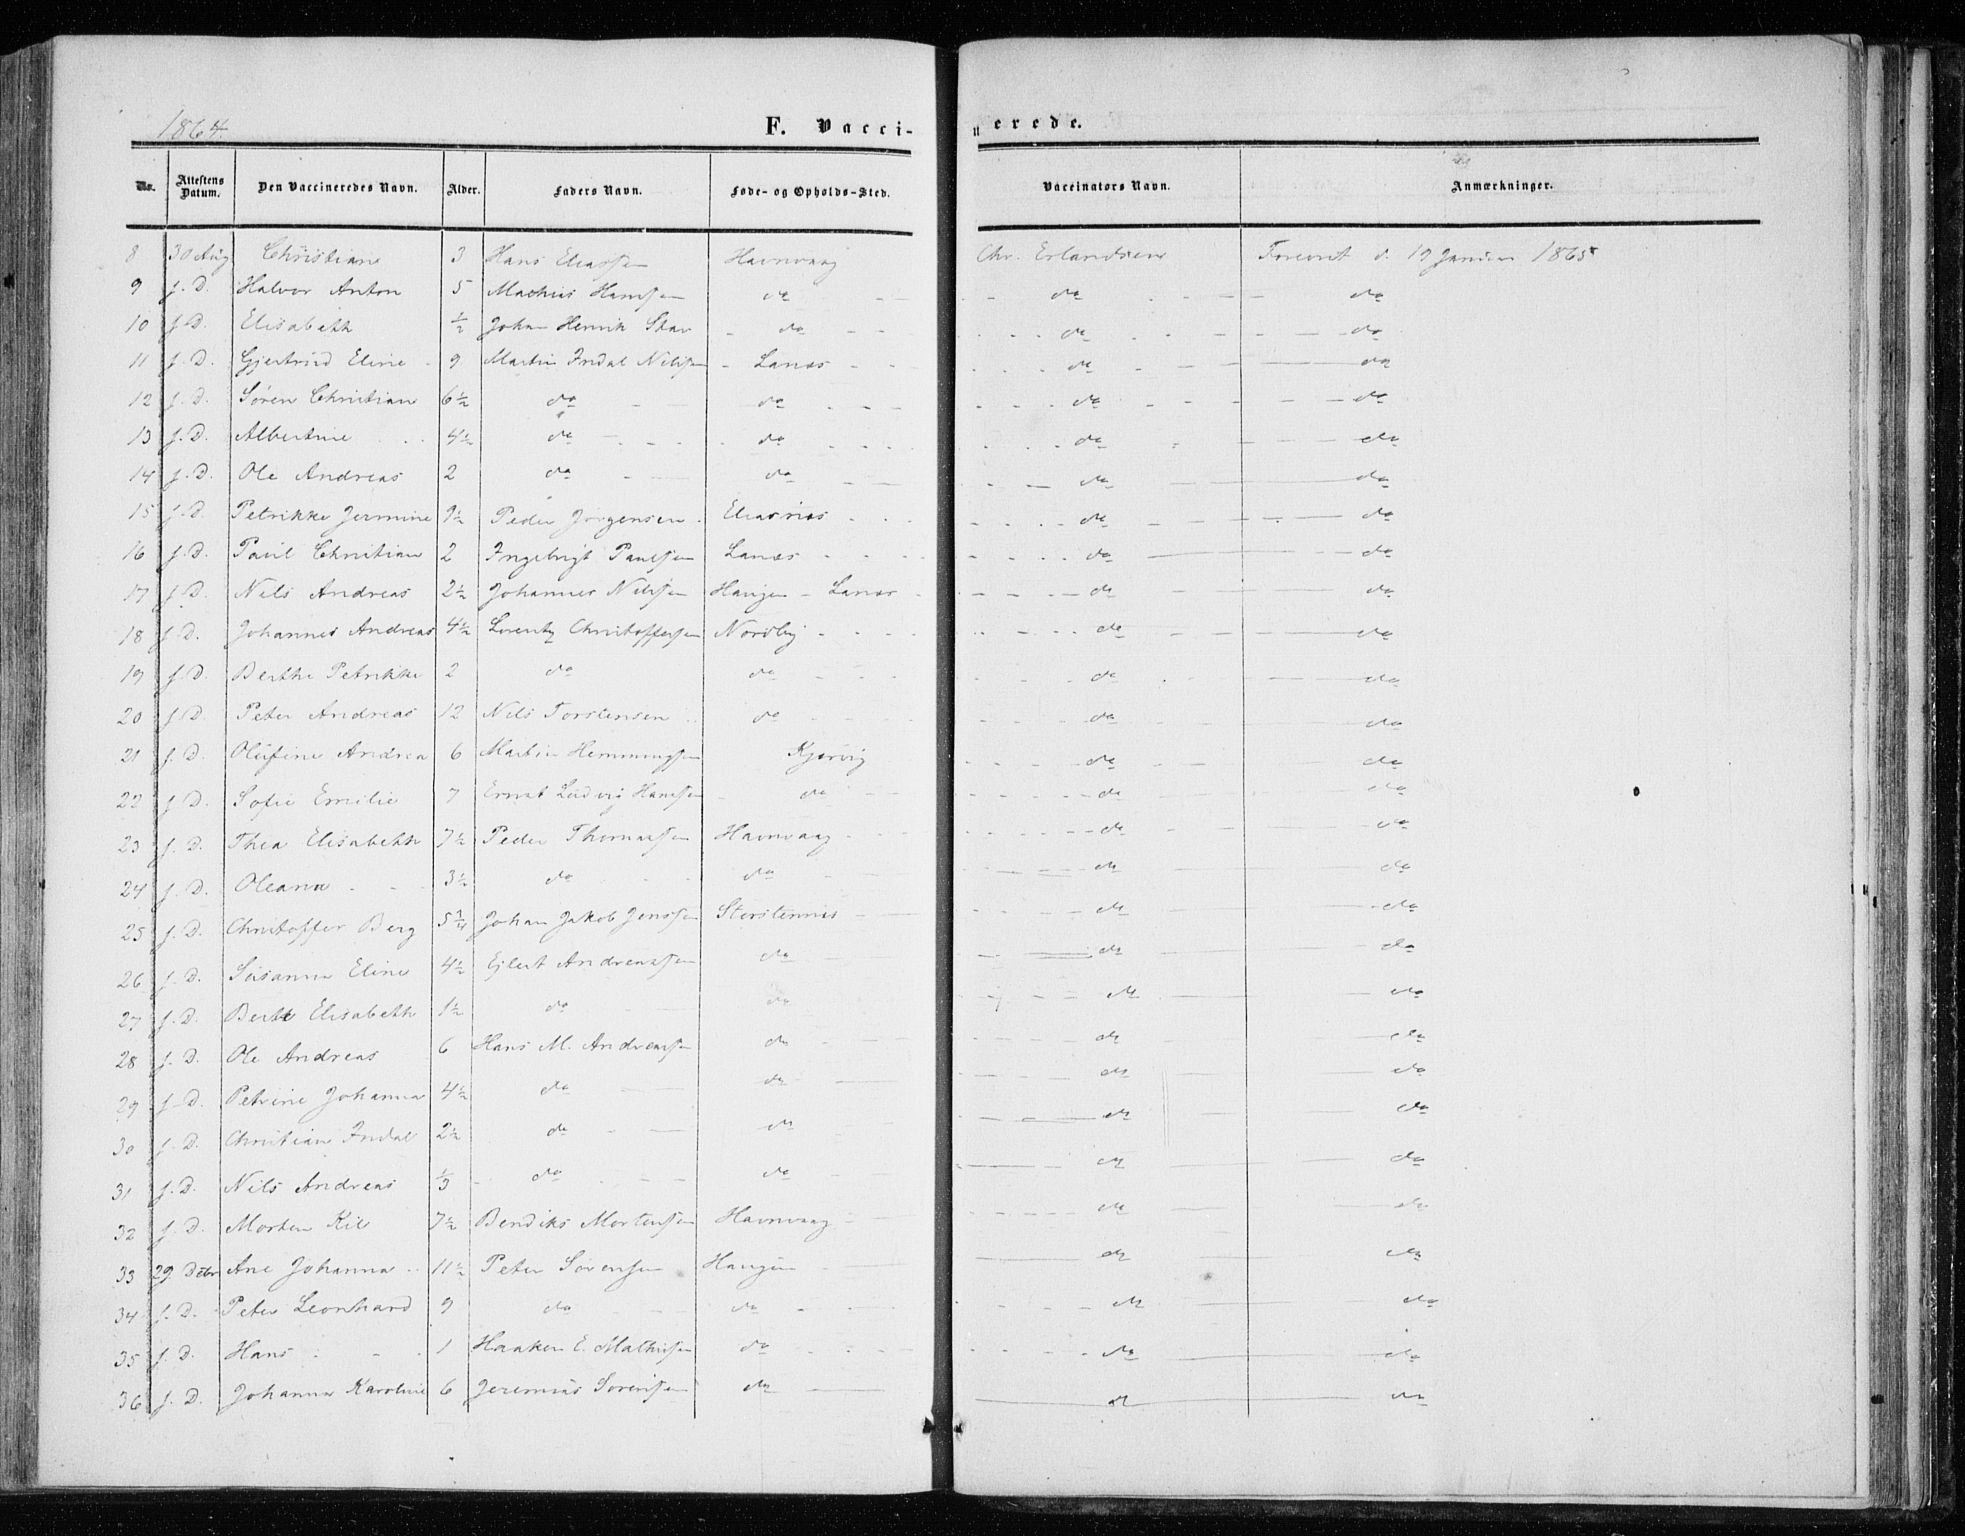 1864.
F. Vaccinerede.
No. | Attestens Datum. | Den Vaccineredes Navn. | Alder. | Faders Navn. | Føde- og Opholds-Sted. | Vaccinators Navn. | Anmærkninger.
8 | 30 Aug | Christian | 3 | Hans Eliassen | Havnvaag | Chr. Erlandsen | Forevist d. 19 Januar 1865
9 | s. D. | Halvor Anton | 5 | Mathias Hansen | do | do | do
10 | s. D. | Elisabeth | ½ | Johan Henrik Stav | do | do | do
11 | s. D. | Gjertrud Eline | 9 | Martin Indal Nilsen | Lanæs | do | do
12 | s. D. | Søren Christian | 6½ | do | do | do | do
13 | s. D. | Albertine | 4½ | do | do | do | do
14 | s. D. | Ole Andreas | 2 | do | do | do | do
15 | s. D. | Petrikke Jermine | 9½ | Peder Jørgensen | Eliasnæs | do | do
16 | s. D. | Paul Christian | 2 | Ingebrigt Paulsen | Lanæs | do | do
17 | s. D. | Nils Andreas | 2½ | Johannes Nilssen | Haugen - Lanæs | do | do
18 | s. D. | Johannes Andreas | 4½ | Lorentz Christoffersen | Nordby | do | do
19 | s. D. | Berthe Petrikke | 2 | do | do | do | do
20 | s. D. | Peter Andreas | 12 | Nils Torstensen | do | do | do
21 | s. D. | Olufine Andrea | 6 | Martin Hemmingsen | Kjørvig | do | do
22 | s. D. | Sofie Emilie | 7 | Ernst Ludvig Hansen | do | do | do
23 | s. D. | Thea Elisabeth | 7½ | Peder Thomassen | Havnvaag | do | do
24 | s. D. | Oleana | 3½ | do | do | do | do
25 | s. D. | Christoffer Berg | 5¾ | Johan Jakob Jenssen | Storstennes | do | do
26 | s. D. | Susanna Eline | 4½ | Ejlert Andreassen | do | do | do
27 | s. D. | Berit Elisabeth | 1½ | do | do | do | do
28 | s. D. | Ole Andreas | 6 | Hans M. Andreassen | do | do | do
29 | s. D. | Petrine Johanna | 4½ | do | do | do | do
30 | s. D. | Christian Indal | 2½ | do | do | do | do
31 | s. D. | Nils Andreas | ⅓ | do | do | do | do
32 | s. D. | Morten Kil | 7½ | Bendiks Mortensen | Havnvaag | do | do
33 | 29 Debr | Ane Johanna | 11½ | Peter Sørensen | Haugen | do | do
34 | s. D. | Peter Leonhard | 9 | do | do | do | do
35 | s. D. | Hans | 1 | Haaken E. Mathisen | do | do | do
36 | s. D. | Johanna Karoline | 6 | Jeremias Sørensen | do | do | do